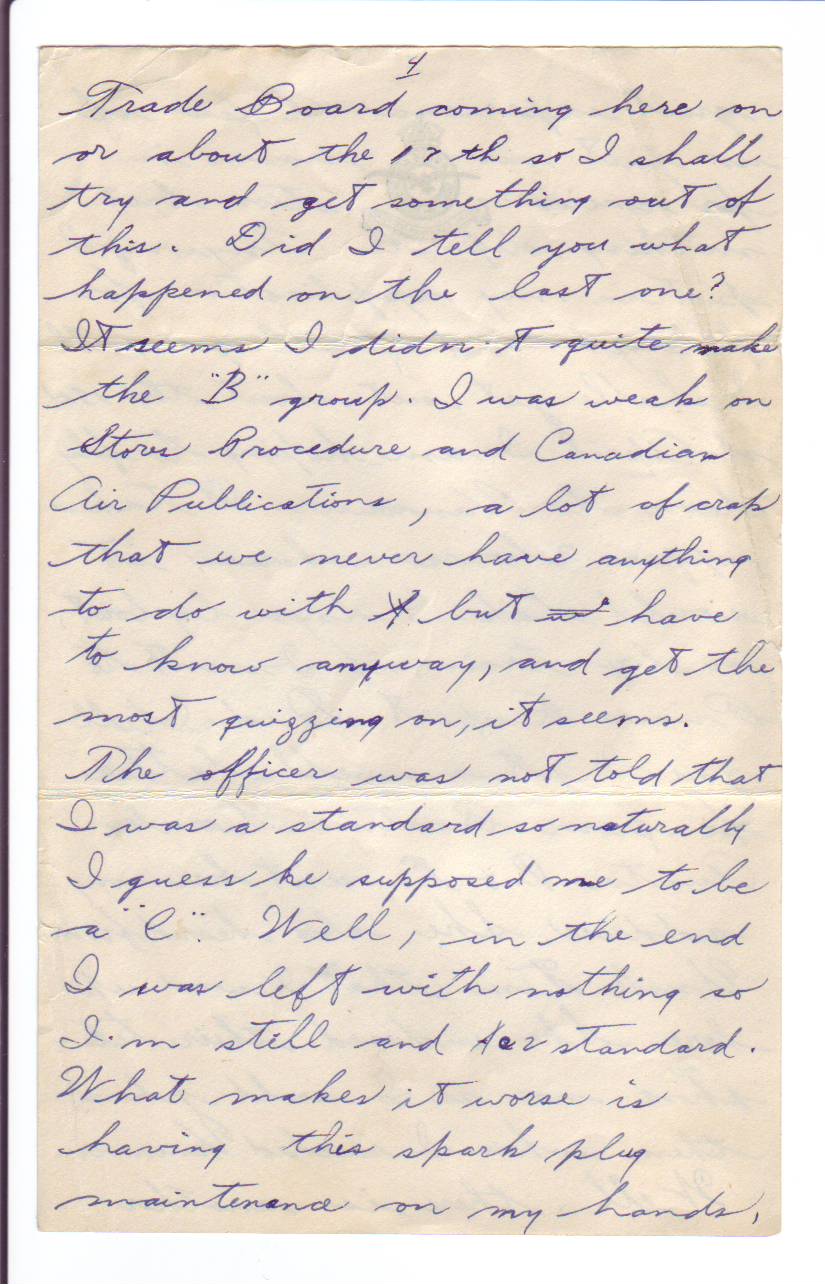 4
Trade Board coming here on
or about the 17th so I shall
try and get something out of
this. Did I tell you what
happened on the last one?
It seems I didn't quite make
the "B" group. I was weak on
Stores Procedure and Canadian
Air Publications, a lot of crap
that we never have anything
to do with but have
to know anyway, and get the
most quizzing on, it seems.
The officer was not told that
I was a standard so naturally
I guess he supposed me to be
a "C". Well, in the end
I was left with nothing so
I'm still and Ac2 standard.
What makes it worse is
having this spark plug
maintenance on my hands,